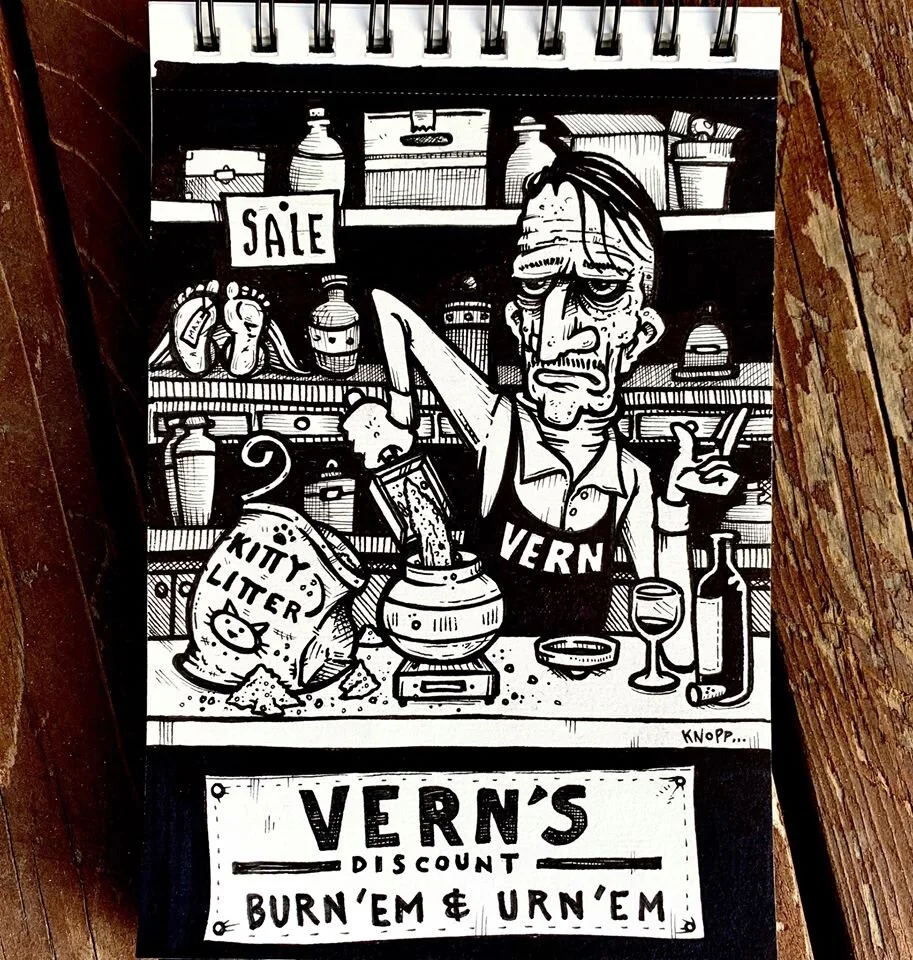 SALE
KITTY
LITTER
VERN
KNOPP...
VERN'S
DISCOUNT
BURN 'EM & URN 'EM